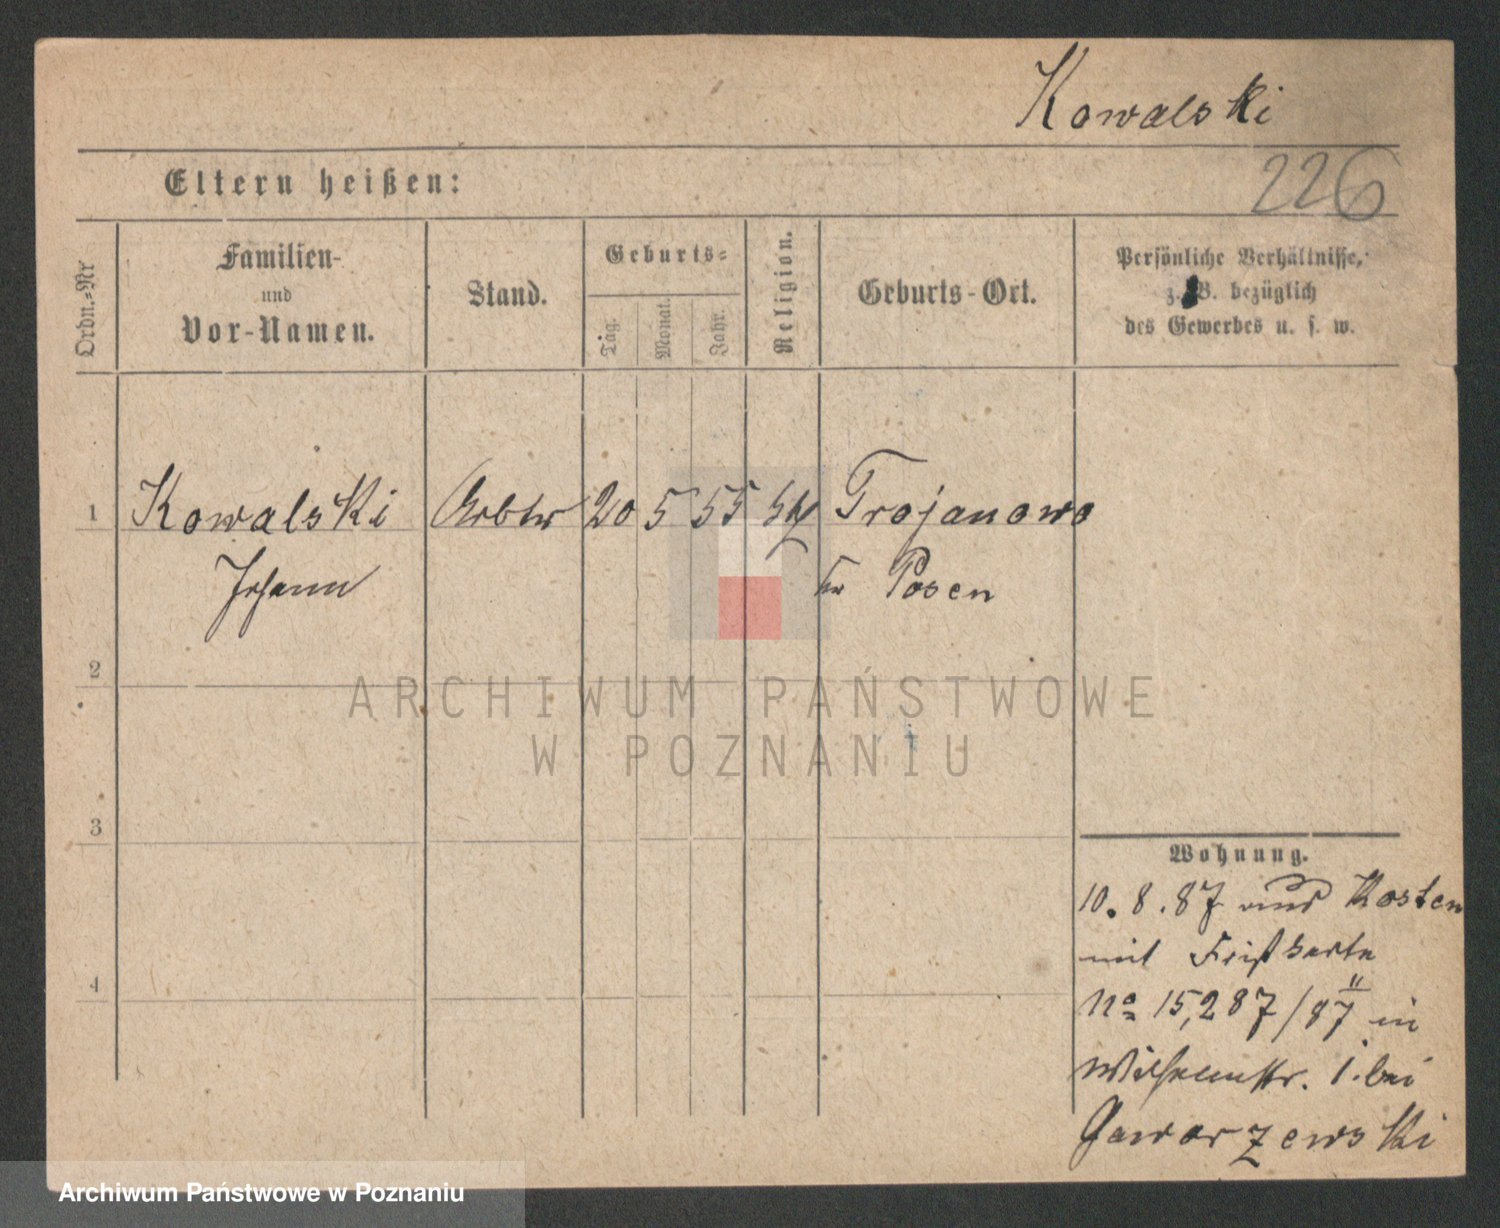 Kowalski
Eltern heißen:
226
Ordn.=Nr
Familien-
und
Vor-Namen.
Stand.
Geburts=
Tag.
Monat.
Jahr.
Religion.
Geburts-Ort.
Persönliche Verhältnisse,
z. B. bezüglich
des Gewerbes u. s. w.
1 Kowalski Arbtr 20 5 55 Trojanowo
Johann Kr Posen
2
3
4
Wohnung.
10. 8. 87 aus Kosten
mit Fristkarte
No 15,287/87 II in
Wilhelmstr. 1. bei
Gaworzewski
ARCHIWUM PAŃSTWOWE
W POZNANIU
Archiwum Państwowe w Poznaniu